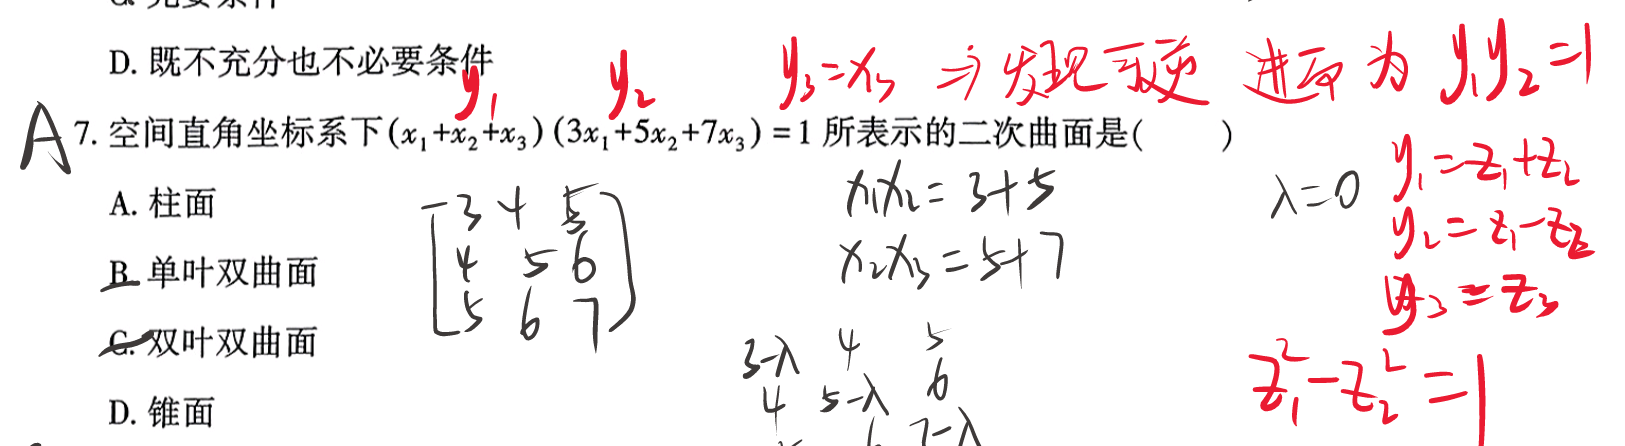 D. 既不充分也不必要条件
y₁ y₂ y₃=x₃ ⇒ 发现可逆 进而为 y₁y₂=1
A 7. 空间直角坐标系下(x₁+x₂+x₃)(3x₁+5x₂+7x₃)=1所表示的二次曲面是( )
A. 柱面
B. 单叶双曲面
C. 双叶双曲面
D. 锥面
3 4 5
4 5 6
5 6 7
x₁x₂=3+5
x₂x₃=5+7
3-λ 4 5
4 5-λ 6
6 7-λ
λ=0
y₁=z₁+z₂
y₂=z₁-z₂
y₃=z₃
z₁²-z₂²=1